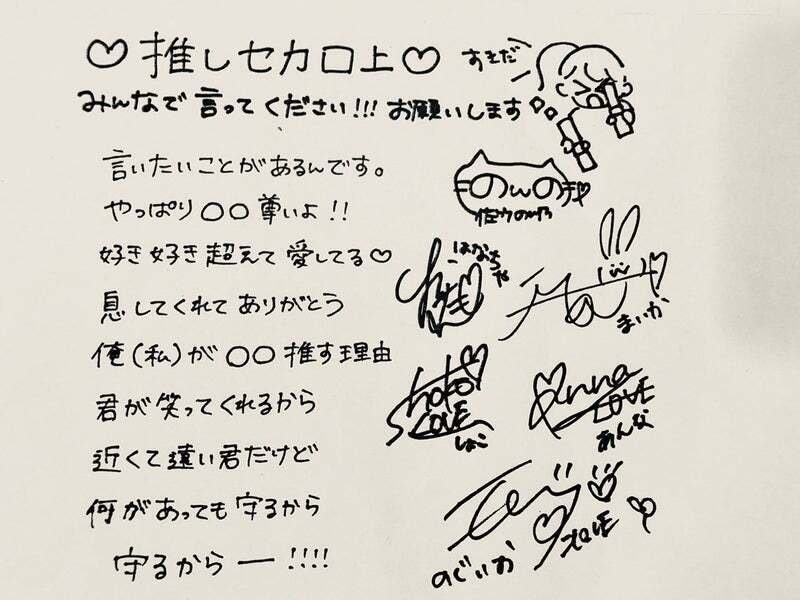 ♡推しセカロ上♡
すきだ
みんなで言ってください!!! お願いします
言いたいことがあるんです。
やっぱり〇〇尊いよ!!
好き好き超えて愛してる♡
息してくれてありがとう
俺(私)が〇〇推す理由
君が笑ってくれるから
近くて遠い君だけど
何があっても守るから
守るからー!!!!
のんの
はなちゃ
まいか
Shoko
LOVE
しょこ
Anna
LOVE
あんな
のじいか